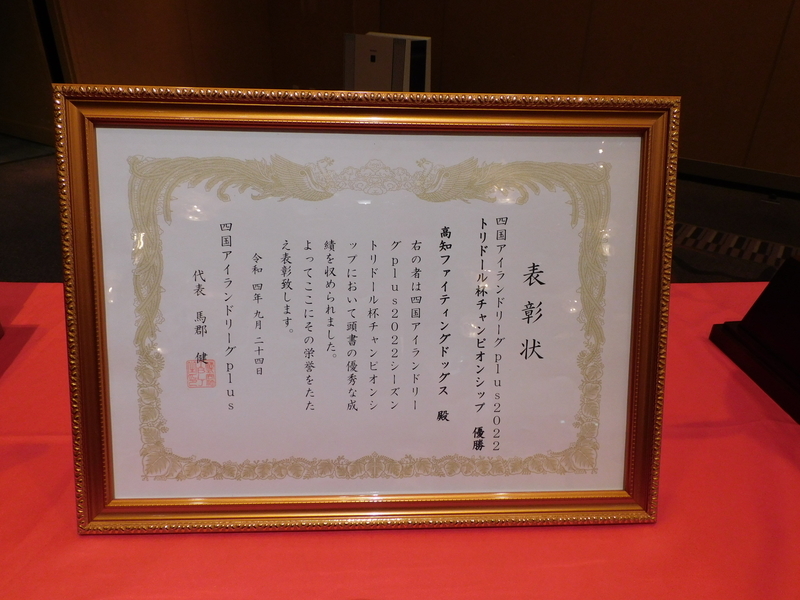 表彰状
四国アイランドリーグplus2022
トリドール杯チャンピオンシップ 優勝
高知ファイティングドッグス 殿
右の者は四国アイランドリー
グplus2022シーズン
トリドール杯チャンピオンシ
ップにおいて頭書の優秀な成
績を収められました。
よってここにその栄誉をたた
え表彰致します。
令和四年九月二十四日
四国アイランドリーグplus
代表 馬郡 健